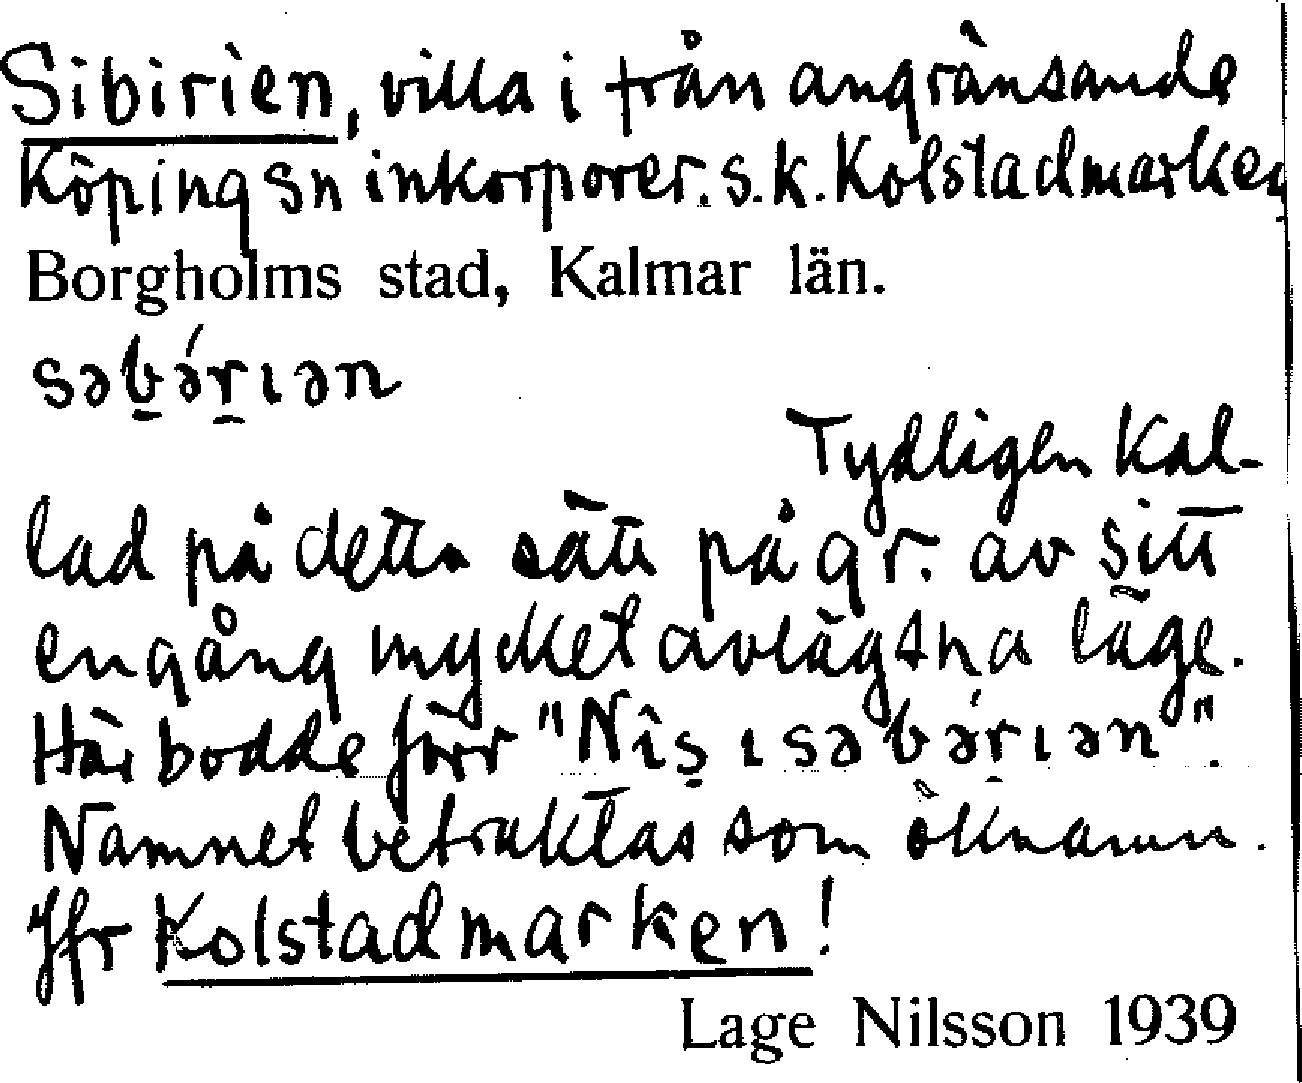 Sibirien, villa i från angränsande
Köping sn inkorporer. s.k. Kolstadmarken
Borgholms stad, Kalmar län.
səbə́rıən
Tydligen kal-
lad på detta sätt på gr. av sitt
engång mycket avlägsna läge.
Här bodde förr "Nis ı səbə́rıən".
Namnet betraktas som öknamn.
Jfr Kolstadmarken!
Lage Nilsson 1939